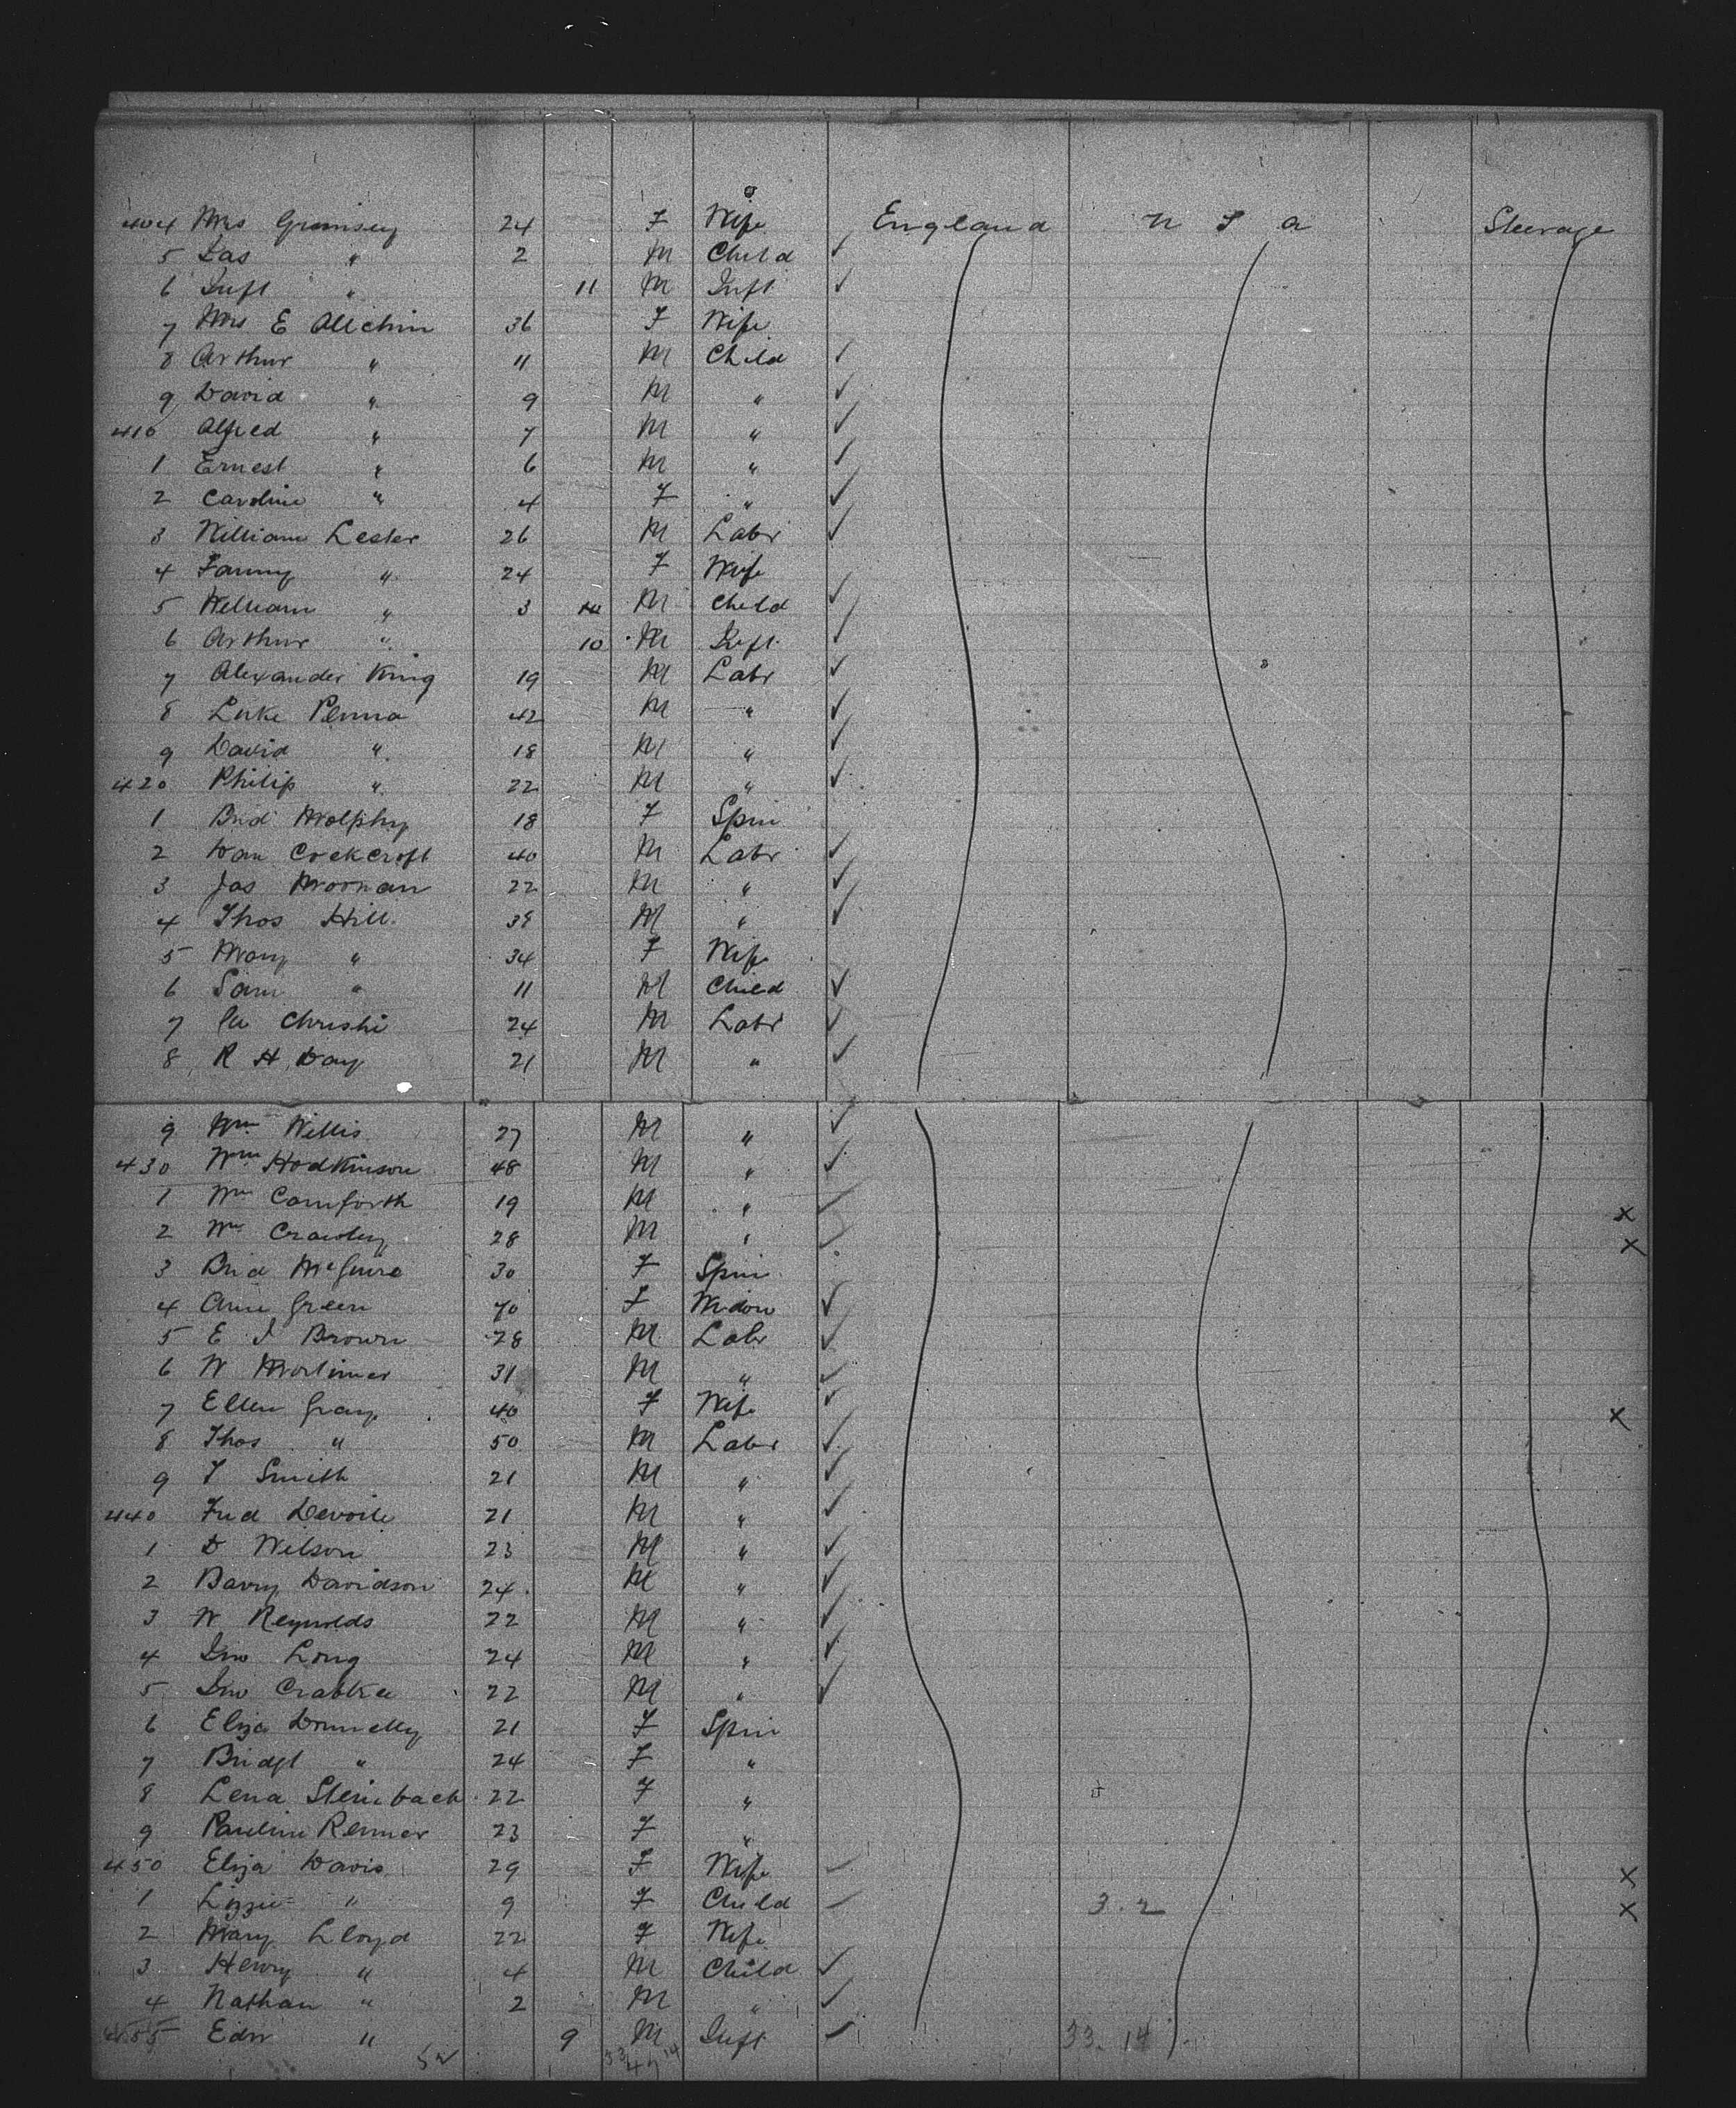 404 Mrs Grimsey 24 F Wife England U S A Steerage
5 Jas " 2 M Child ✓
6 Inft " 11 M Inft ✓
7 Mrs E Allchin 36 F Wife
8 Arthur " 11 M Child ✓
9 David " 9 M " ✓
410 Alfred " 7 M " ✓
1 Ernest " 6 M " ✓
2 Caroline " 4 F " ✓
3 William Lester 26 M Labr ✓
4 Fanny " 24 F Wife
5 William " 3 M Child ✓
6 Arthur " 10 M Inft ✓
7 Alexander King 19 M Labr ✓
8 Luke Penna 42 M " ✓
9 David " 18 M " ✓
420 Philip " 22 M " ✓
1 Brid Molphy 18 F Spin
2 Dan Cockcroft 40 M Labr ✓
3 Jas Moonan 22 M " ✓
4 Thos Hill 38 M " ✓
5 Mary " 34 F Wife
6 Sam " 11 M Child ✓
7 Christie 24 M Labr ✓
8 R H Day 21 M " ✓
9 Wm Willis 27 M " ✓
430 Wm Hodkinson 48 M " ✓
1 Wm Cornforth 19 M " ✓ x
2 Wm Crawley 28 M " ✓ x
3 Brid McGuire 30 F Spin
4 Ann Green 70 F Widow ✓
5 E J Brown 28 M Labr ✓
6 W Mortimer 31 M " ✓
7 Ellen Gray 40 F Wife ✓ x
8 Thos " 50 M Labr ✓
9 T Smith 21 M " ✓
440 Fred Devoile 21 M " ✓
1 D Wilson 23 M " ✓
2 Barry Davidson 24 M " ✓
3 W Reynolds 22 M " ✓
4 Jno Long 24 M " ✓
5 Jno Crabtree 22 M " ✓
6 Eliza Donnelly 21 F Spin
7 Bridgt " 24 F "
8 Lena Steinbach 22 F "
9 Pauline Renner 23 F "
450 Eliza Davis 29 F Wife x
1 Lizzie " 9 F Child 3.2 x
2 Mary Lloyd 22 F Wife
3 Henry " 4 M Child ✓
4 Nathan " 2 M " ✓
455 Edw " 9 M Inft ✓ 33.14